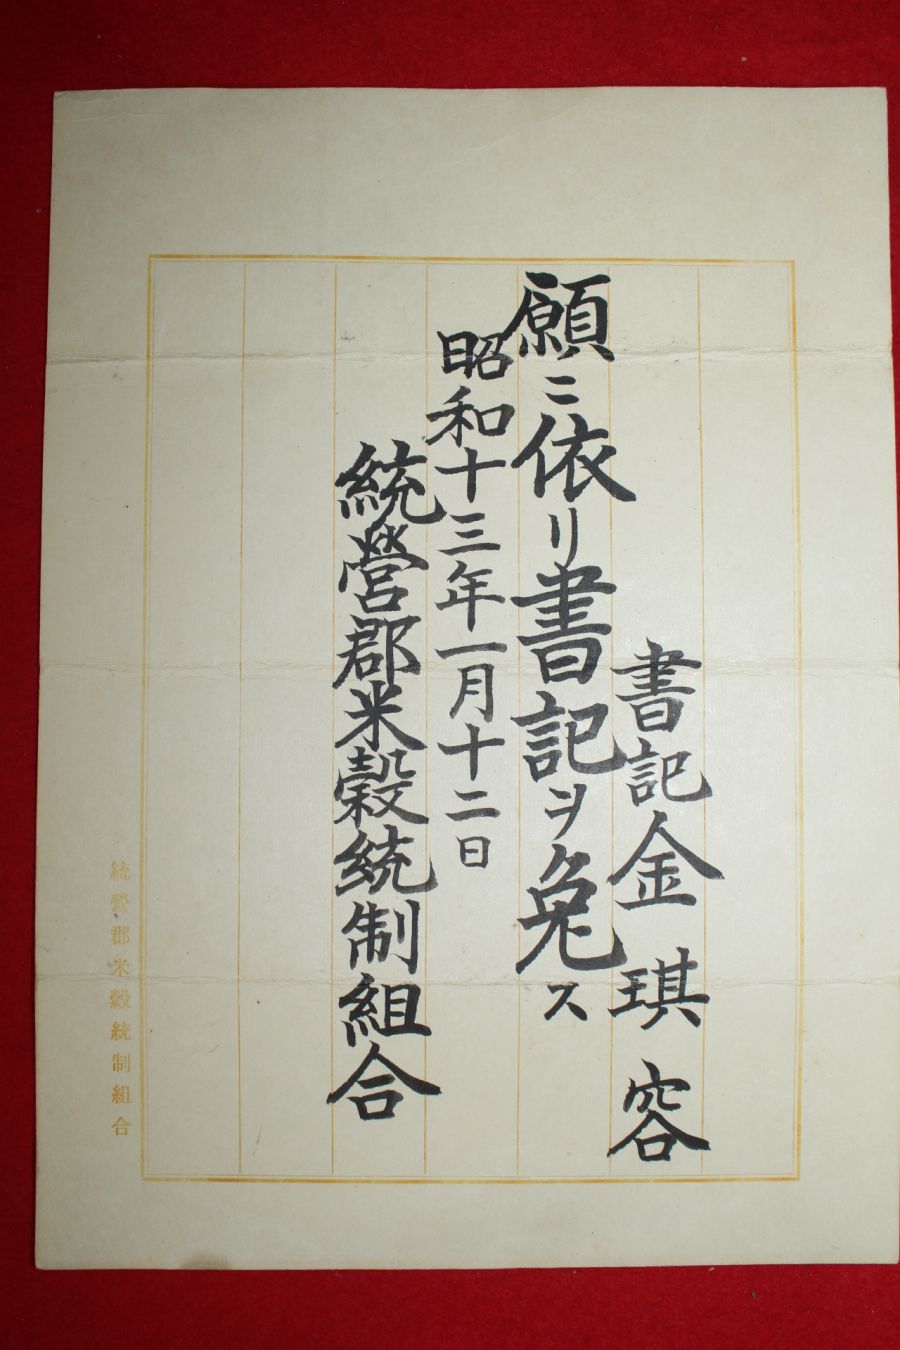 書記金琪容
願ニ依リ書記ヲ免ス
昭和十三年一月十二日
統營郡米穀統制組合
統營郡米穀統制組合